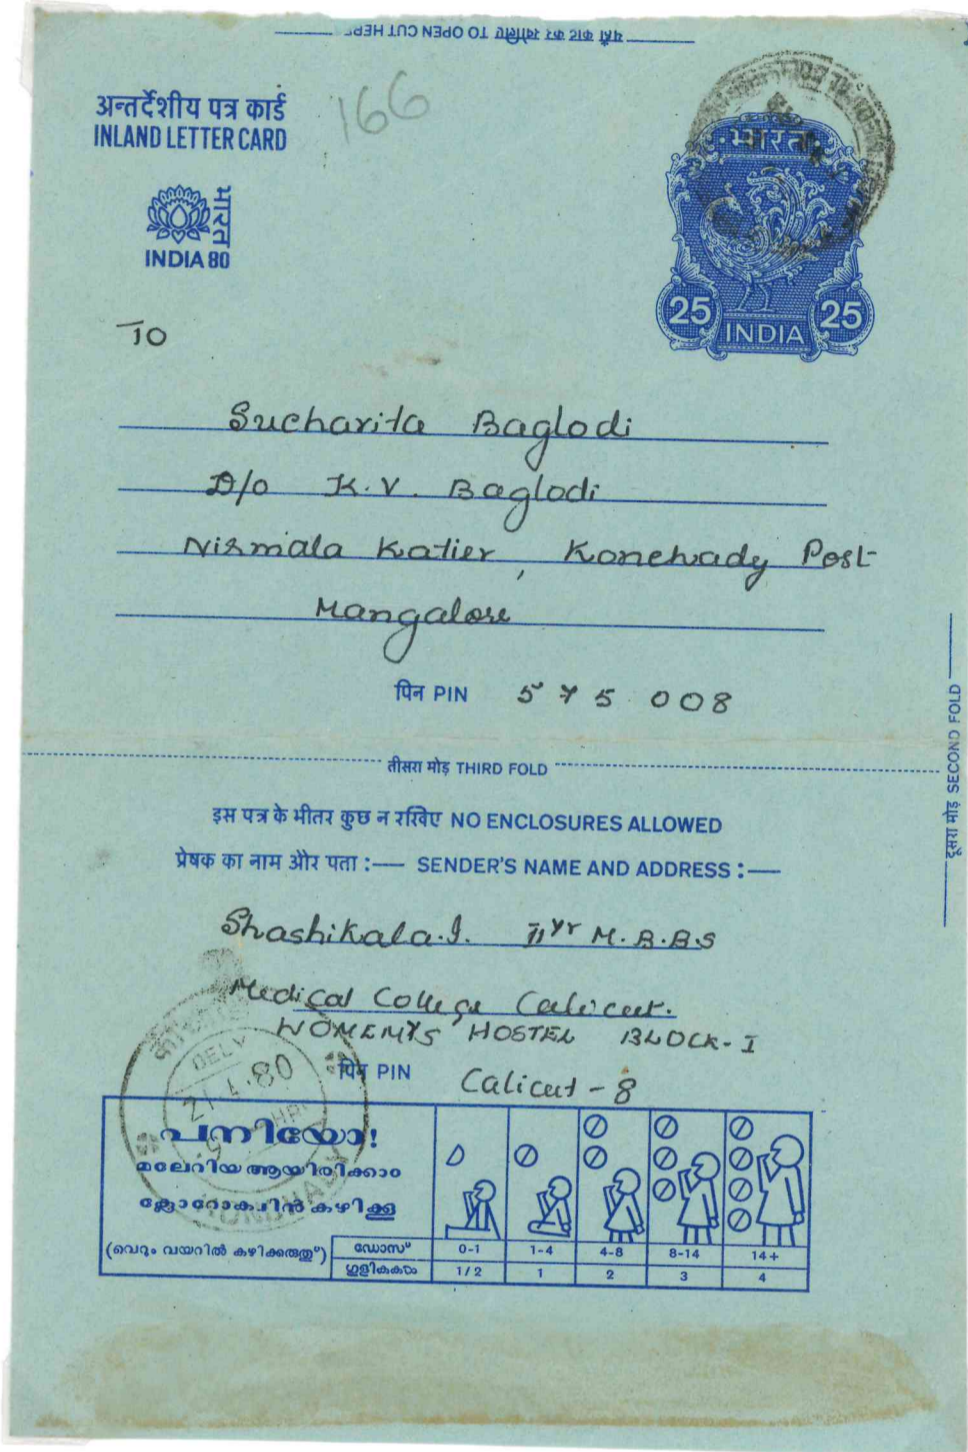 यहाँ काट कर खोलिए TO OPEN CUT HERE
अन्तर्देशीय पत्र कार्ड
INLAND LETTER CARD
166
भारत
INDIA 80
भारत
25 INDIA 25
TO
Sucharita Baglodi
D/o K.V. Baglodi
Nirmala Katier, Konchady Post
Mangalore
पिन PIN 575 008
तीसरा मोड़ THIRD FOLD
दूसरा मोड़ SECOND FOLD
इस पत्र के भीतर कुछ न रखिए NO ENCLOSURES ALLOWED
प्रेषक का नाम और पता :— SENDER'S NAME AND ADDRESS :—
Shashikala.I. II yr M.B.B.S
Medical College Calicut.
WOMEN'S HOSTEL BLOCK-I
पिन PIN Calicut-8
DELY
21.4.80
പനിയോ!
മലേറിയ ആയിരിക്കാം
ക്ലോറോക്വിൻ കഴിക്കൂ
(വെറും വയറിൽ കഴിക്കരുത്)
ഡോസ് 0-1 1-4 4-8 8-14 14+
ഗുളികകൾ 1/2 1 2 3 4